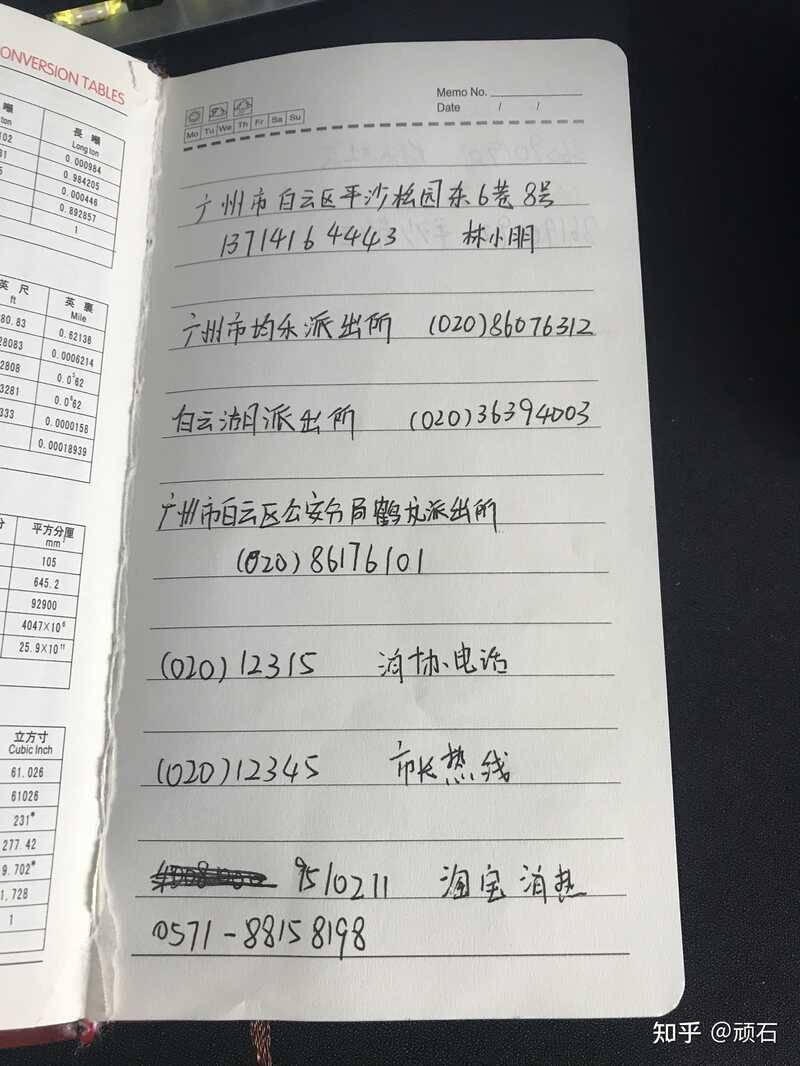 ONVERSION TABLES
噸
ton
長 噸
Long ton
102
0.000984
0.984205
0.000446
0.892857
1
英 尺
ft
英 裏
Mile
80.83
0.62136
28083
0.0006214
2808
0.0³62
3281
0.0⁶62
333
0.0000158
0.00018939
分
平方分厘
mm²
105
645.2
92900
4047×10⁶
25.9×10¹¹
立方寸
Cubic Inch
61.026
61026
231*
277.42
9.702*
1,728
1
Memo No.
Date / /
Mo Tu We Th Fr Sa Su
广州市白云区平沙松园东6巷8号
13714164443 林小朋
广州市均禾派出所 (020)86076312
白云湖派出所 (020)36394003
广州市白云区公安分局鹤龙派出所
(020)86176101
(020)12315 消协电话
(020)12345 市长热线
9510211 淘宝消热
0571-88158198
知乎 @顽石